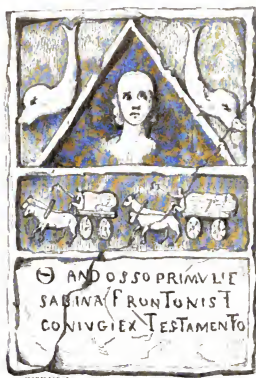 Θ ANDOSSO PRIMVLI F
SABINA FRONTONIS F
CONIVGI EX TESTAMENTO